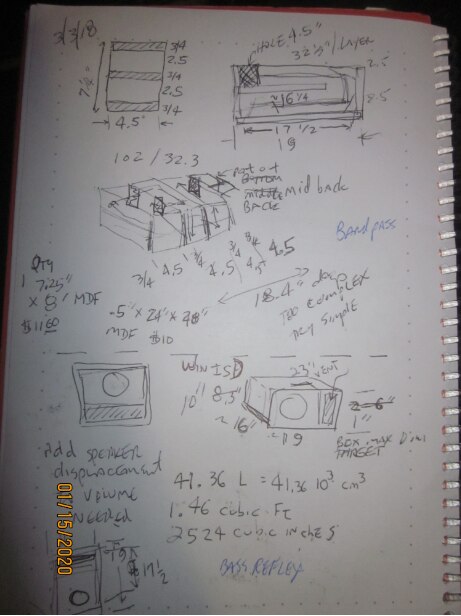 3/3/18
3/4
2.5
3/4
2.5
3/4
7 1/4"
4.5"
HOLE 4.5"
32 1/3"/LAYER
2.5
≈16 1/4
2.5
17 1/2
19
102/32.3
Mid back
BACK
Bandpass
3/4 4.5 3/4 4.5 3/4 4.5 3/4 4.5
QTY
1 7.25"
x 8' MDF
$11.60
.5" x 24" x 48"
MDF $10
18.4" deep
TOO COMPLEX
TRY SIMPLE
WIN ISD
23" VENT
10" 8.3"
~16"
~19
2=6"
1"
BOX MAX Dim
TARGET
add SPEAKER
displacement
VOLUME
NEEDED
41.36 L = 41.36 10³ cm³
1.46 cubic Ft
2524 cubic inches
BASS REFLEX
19
17 1/2
01/15/2020